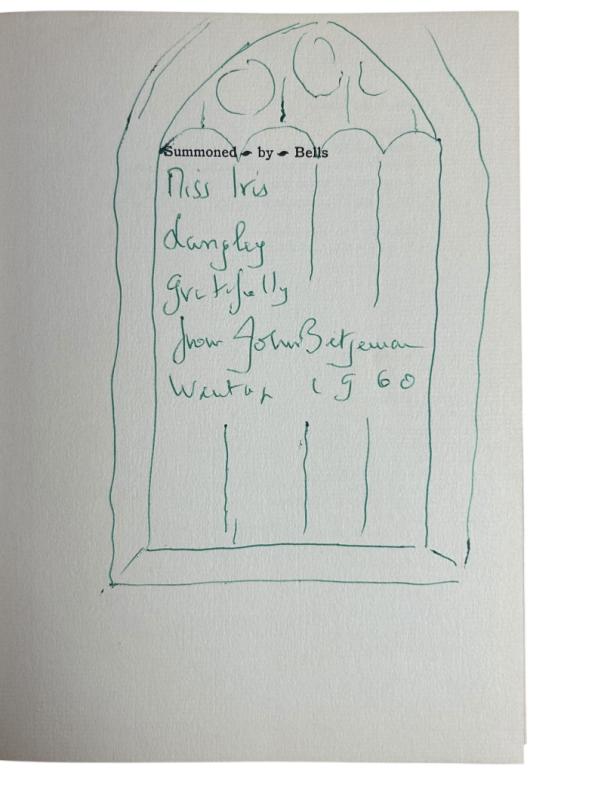 Summoned by Bells
Miss Iris
Langley
gratefully
from John Betjeman
Wantage 1960